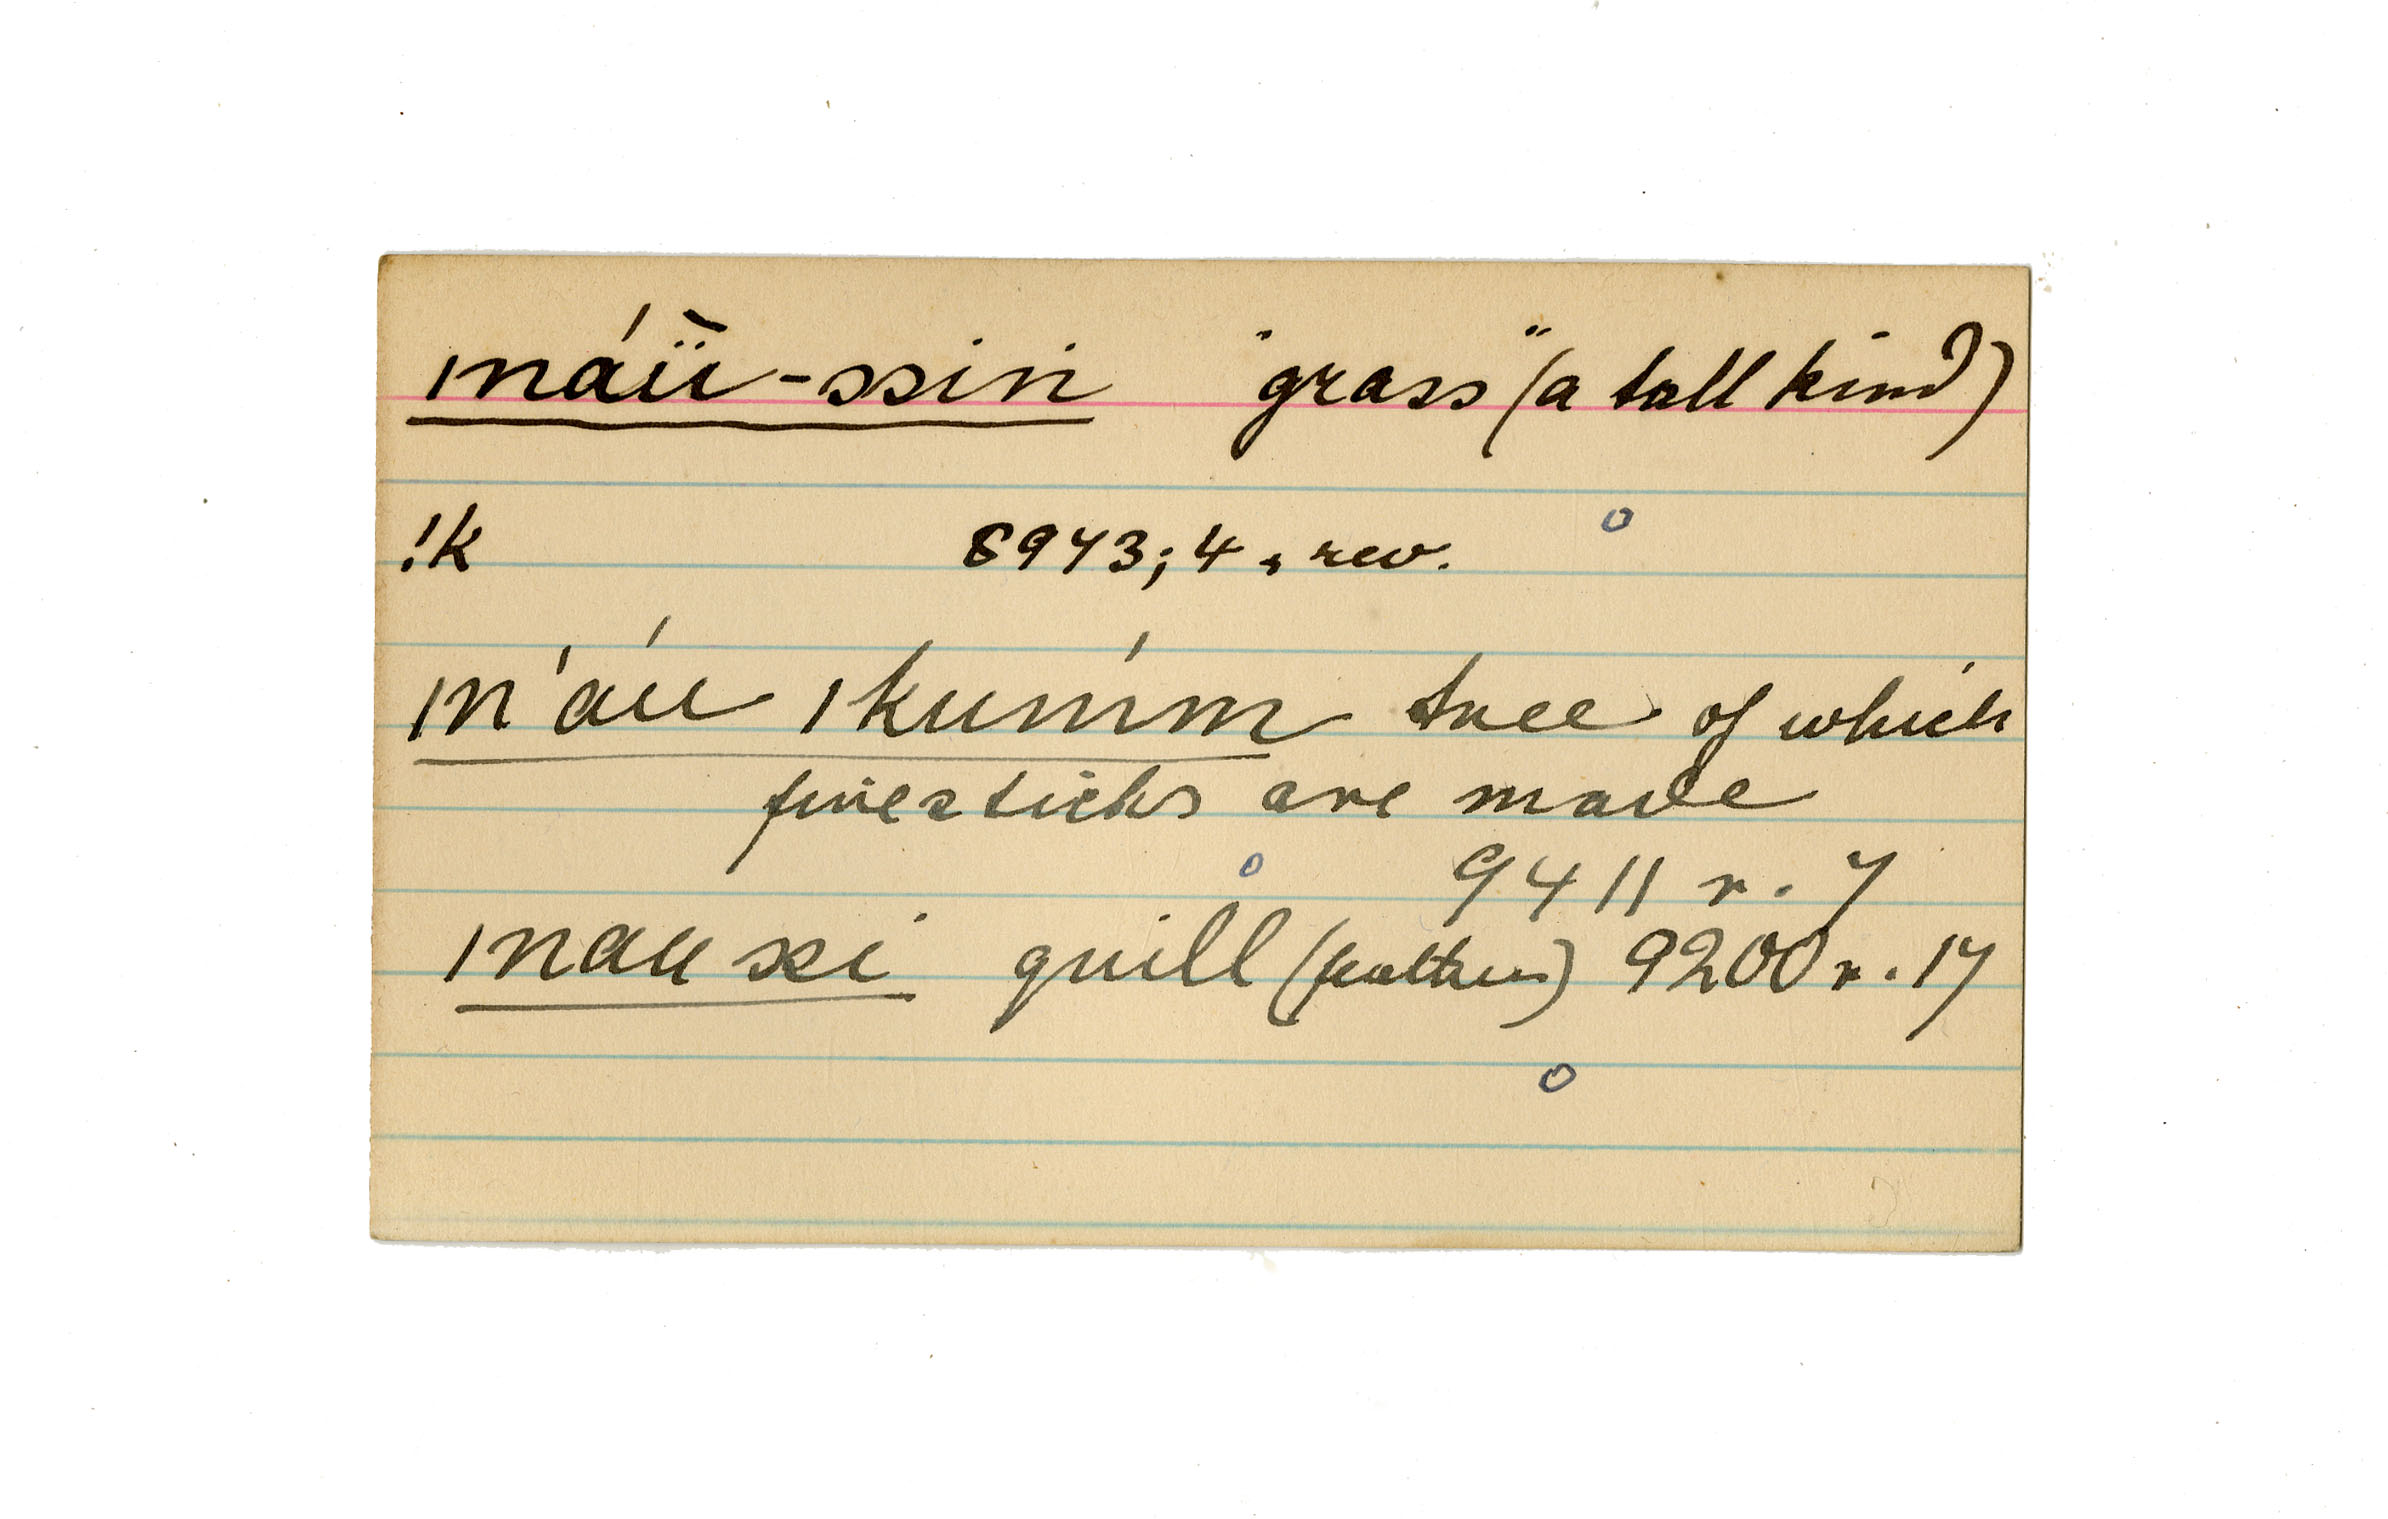 ǀnáǖ-ssin "grass" (a tall kind)
!k 8943; 4, rev.
ǀn'áú ǀkum'm tree of which
firesticks are made
9411 r. 7
ǀnau ssi quill (feathers) 9200 r. 17